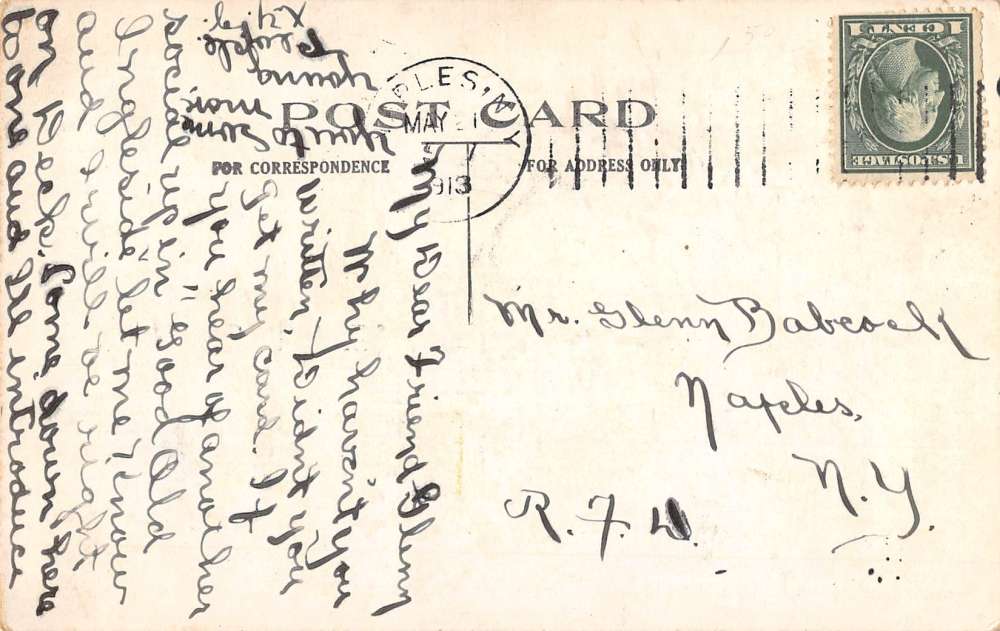 POST CARD
FOR CORRESPONDENCE
FOR ADDRESS ONLY
NAPLES, N.Y.
MAY 21
1913
U.S. POSTAGE
1 CENT 1
My Dear Friend Glenn
Why haven't you
written, Didn't you
get my card. If
you hear of another
social up in "Good Old
Ingleside" let me know
and I will be right
on Deck. Come down here
and I'll introduce
you to some
more young
People
Mr. Glenn Babcock
Naples,
N.Y.
R.F.D.